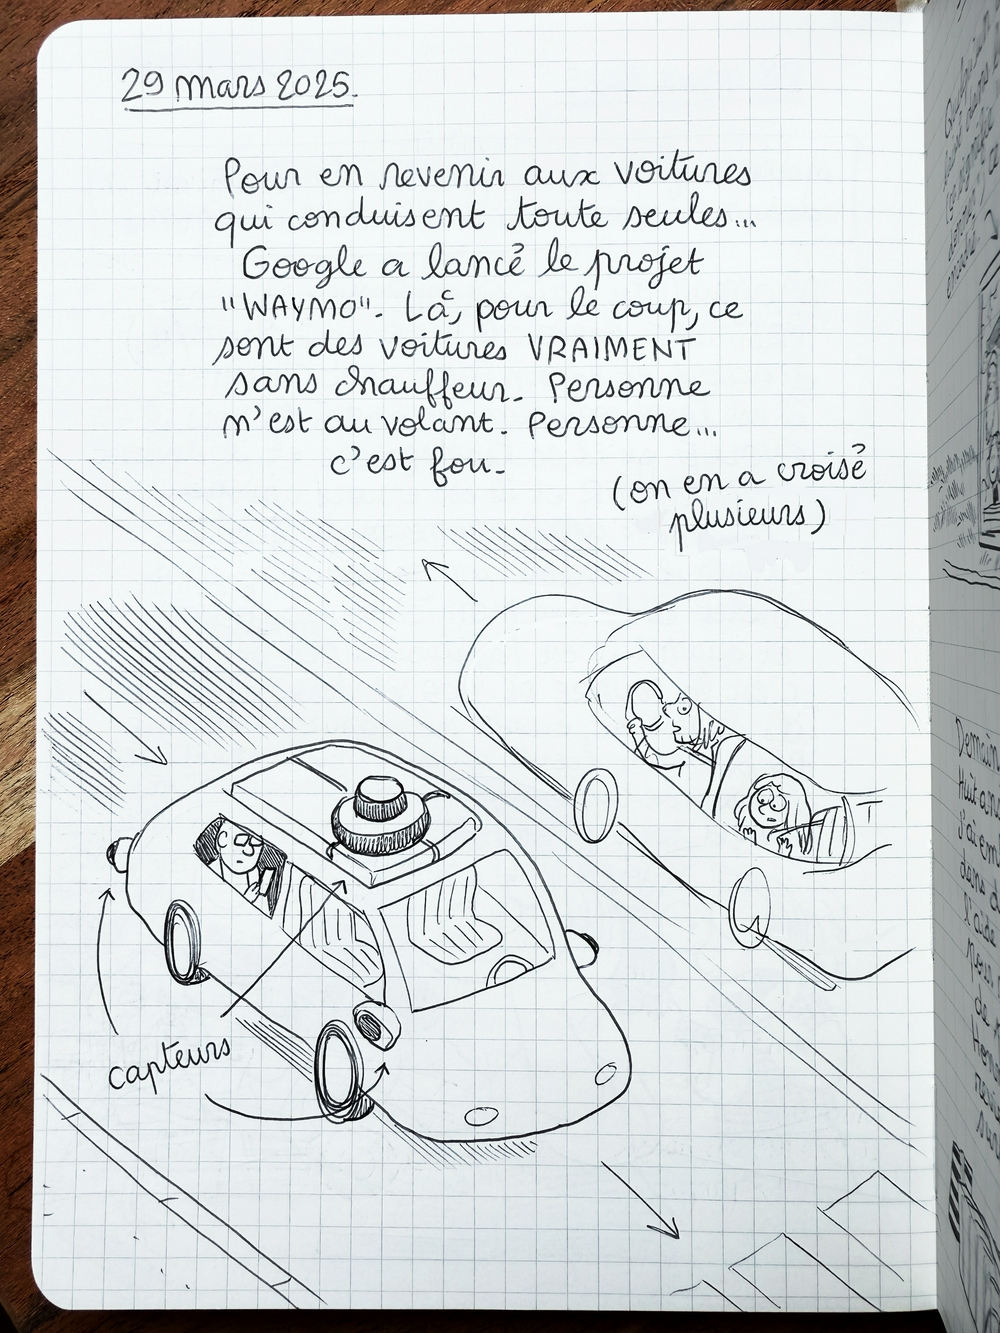 29 mars 2025.
Pour en revenir aux voitures
qui conduisent toute seules...
Google a lancé le projet
"WAYMO". Là, pour le coup, ce
sont des voitures VRAIMENT
sans chauffeur. Personne
n'est au volant. Personne...
c'est fou.
(on en a croisé
plusieurs)
capteurs
Demain
Huit ans
J'ai em
dans d
L'aide
pour
de